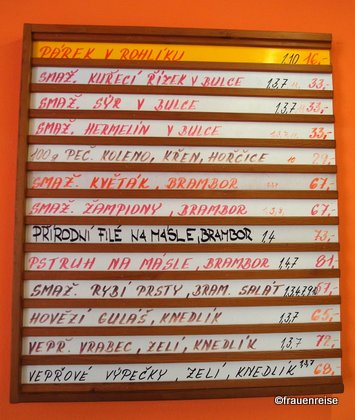 PÁREK V ROHLÍKU 1.10 16,-
SMAŽ. KUŘECÍ ŘÍZEK V BULCE 1.3.7 33,-
SMAŽ. SÝR V BULCE 1.3.7 33,-
SMAŽ. HERMELÍN V BULCE 1.3.7 33,-
100g PEČ. KOLENO, KŘEN, HOŘČICE 10
SMAŽ. KVĚTÁK, BRAMBOR 67,-
SMAŽ. ŽAMPIONY, BRAMBOR 1.3.7 67,-
PŘÍRODNÍ FILÉ NA MÁSLE, BRAMBOR 1,4 73,-
PSTRUH NA MÁSLE, BRAMBOR 1,4,7 81,-
SMAŽ. RYBÍ PRSTY, BRAM. SALÁT
HOVĚZÍ GULÁŠ, KNEDLÍK 1.3.7 65,-
VEPŘ. VRABEC, ZELÍ, KNEDLÍK 1.3.7 72,-
VEPŘOVÉ VÝPEČKY, ZELÍ, KNEDLÍK 1.3.7 68,-
©frauenreise